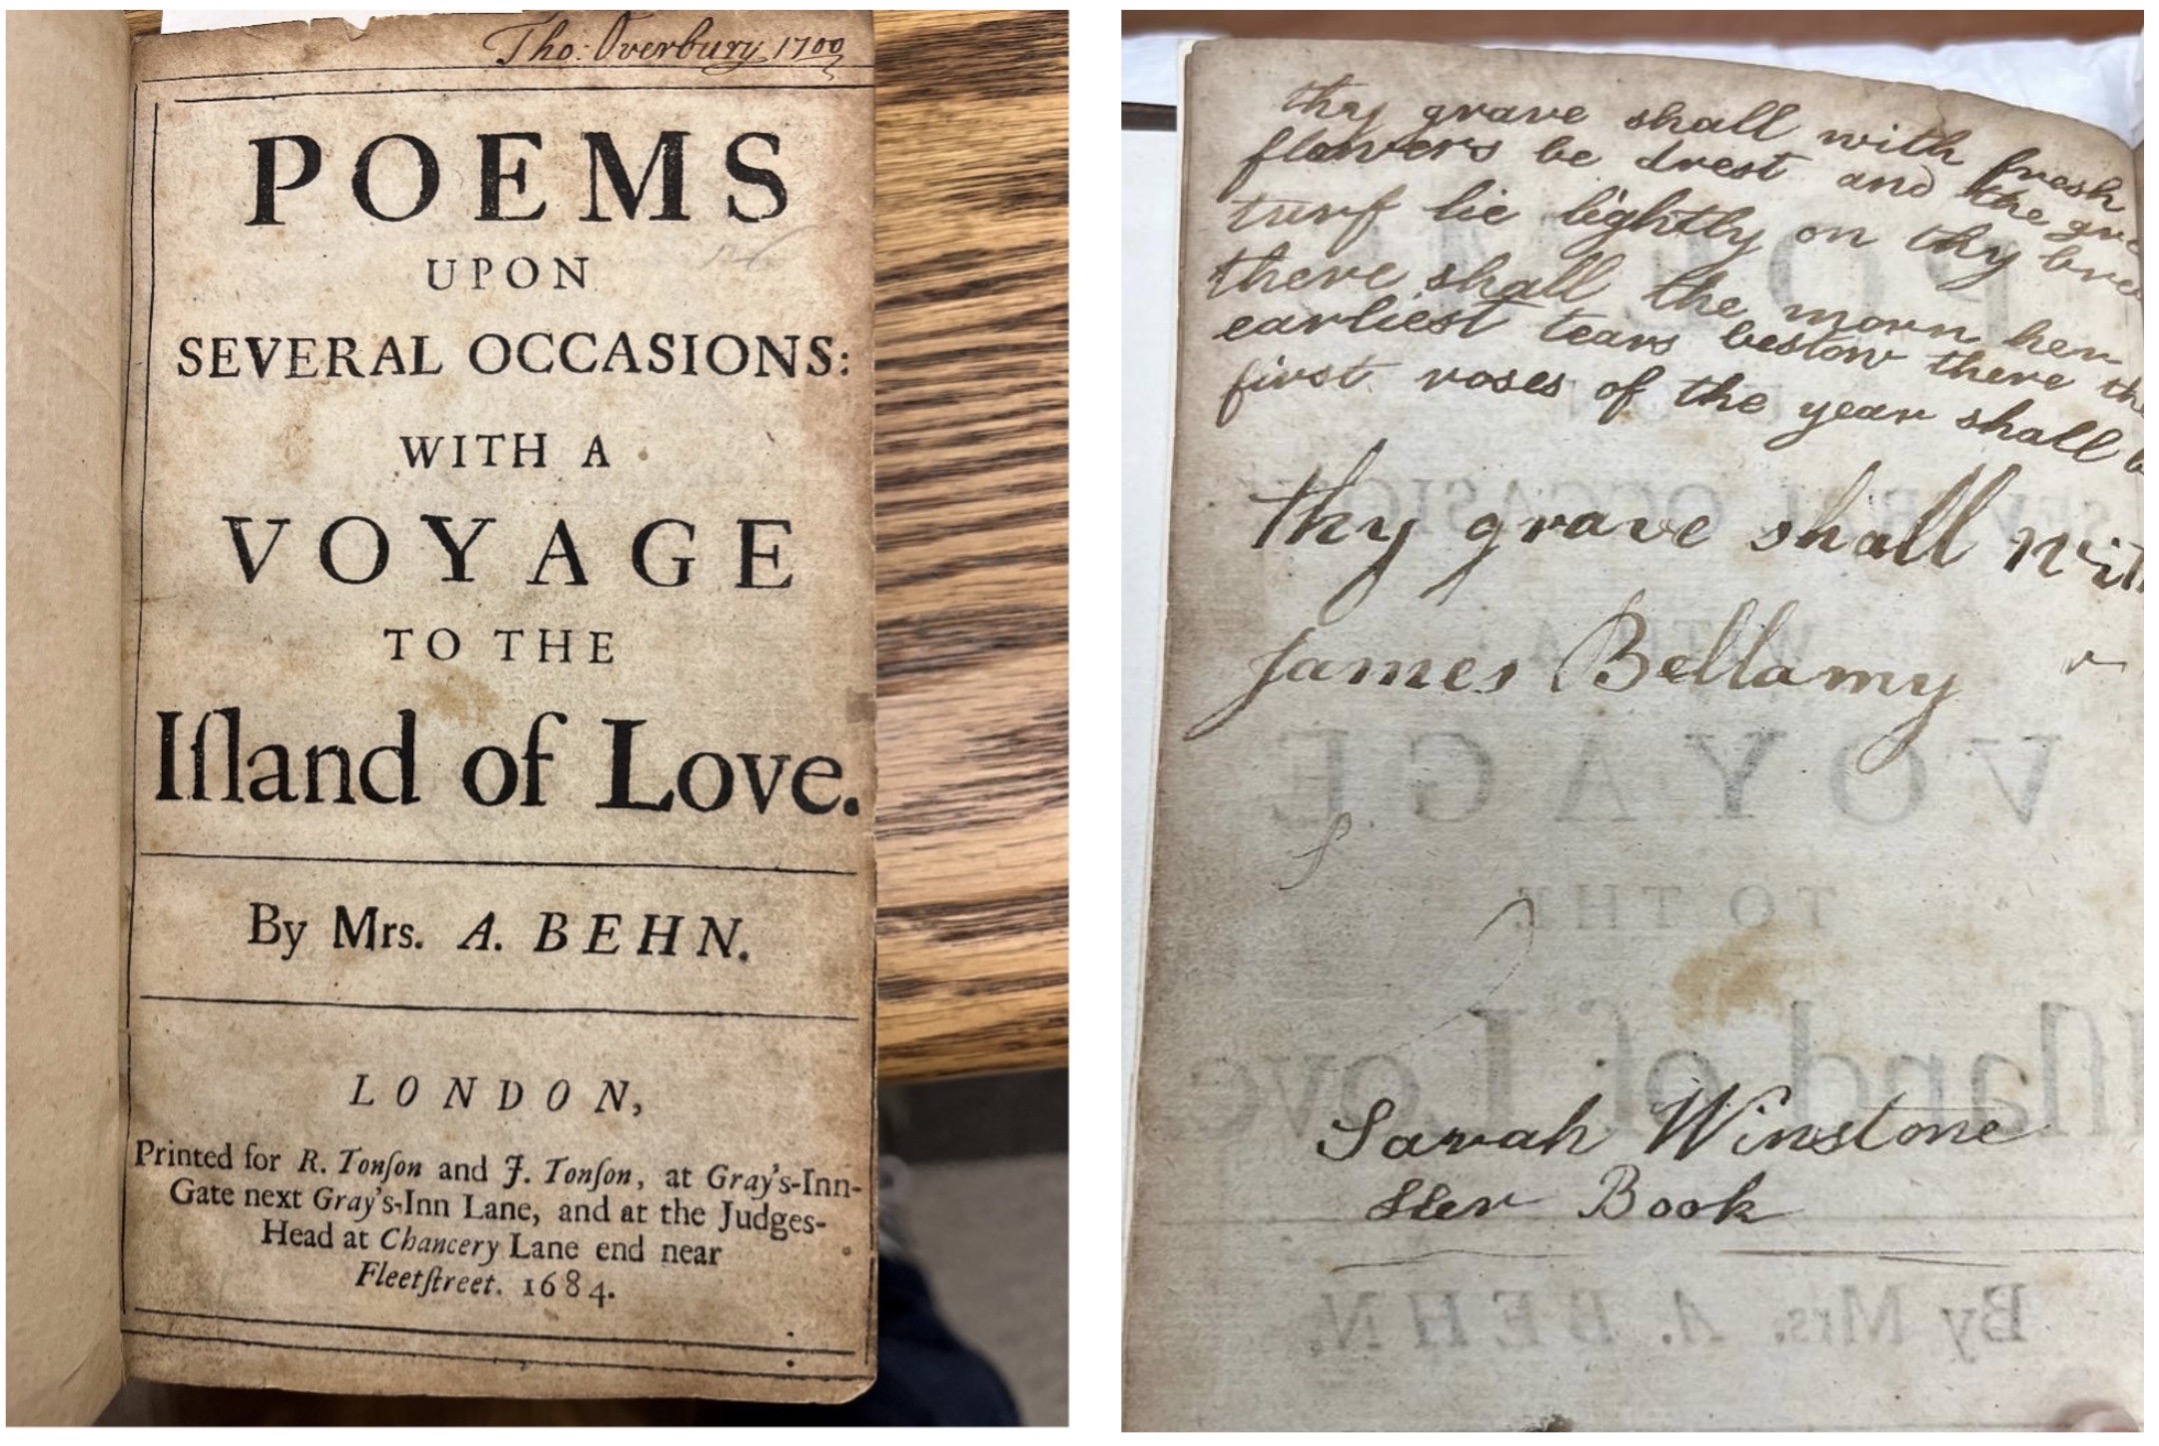 Tho: Overbury 1700
POEMS
UPON
SEVERAL OCCASIONS:
WITH A
VOYAGE
TO THE
Iſland of Love.
By Mrs. A. BEHN.
LONDON,
Printed for R. Tonſon and J. Tonſon, at Gray's-Inn-
Gate next Gray's-Inn Lane, and at the Judges-
Head at Chancery Lane end near
Fleetſtreet. 1684.
thy grave shall with fresh
flowers be drest and the
turf lie lightly on thy
there shall the morn her
earliest tears bestow there
first roses of the year shall
thy grave shall with
James Bellamy
Sarah Winstone
Her Book